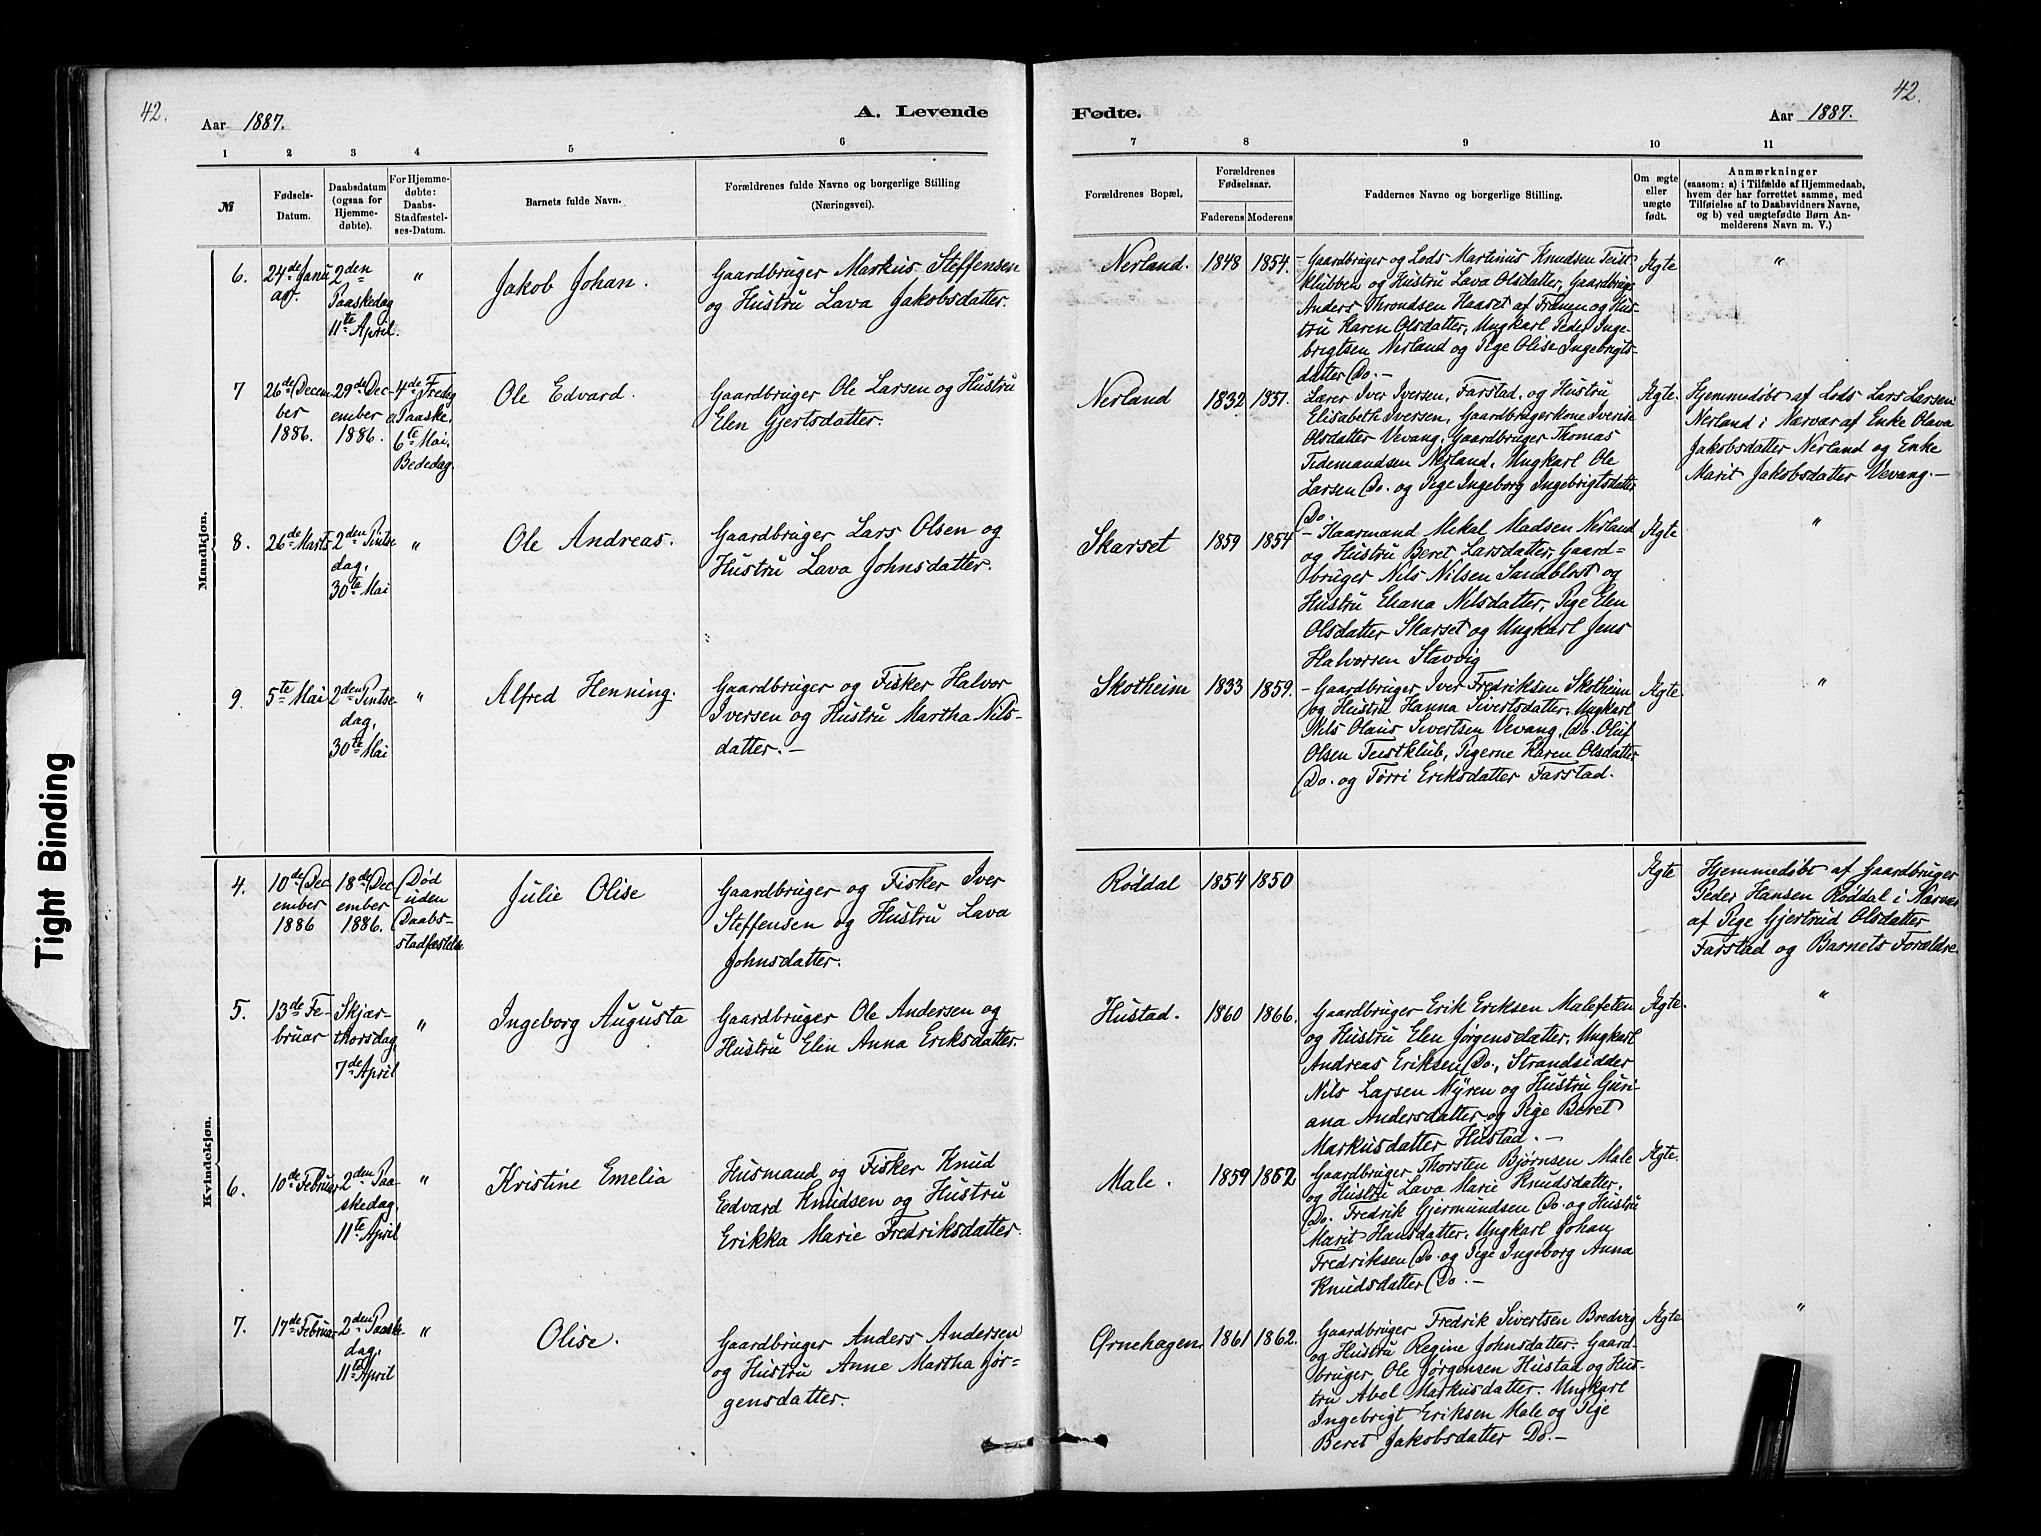 42.
Aar 1887.
A. Levende
Fødte.
Aar 1887.
42.
1 2 3 4 5 6
7 8 9 10 11
№
Fødsels-
Datum.
Daabsdatum
(ogsaa for
Hjemme-
døbte).
For Hjemme-
døbte:
Daabs-
Stadfæstel-
ses-Datum.
Barnets fulde Navn.
Forældrenes fulde Navne og borgerlige Stilling
(Næringsvei).
Forældrenes Bopæl.
Forældrenes
Fødselsaar.
Faderens
Moderens
Faddernes Navne og borgerlige Stilling.
Om ægte
eller
uægte
født.
Anmærkninger
(saasom: a) i Tilfælde af Hjemmedaab,
hvem der har forrettet samme, med
Tilføielse af to Daabsvidners Navne,
og b) ved uægtefødte Børn An-
melderens Navn m. V.)
Mandkjøn.
6.
24de Janu
ar.
2den
Paaskedag
11te April.
"
Jakob Johan.
Gaardbruger Markus Steffensen
og Hustru Lava Jakobsdatter.
Nerland.
1848
1854.
Gaardbruger og Lods Martinus Knudsen Teist
klubben og Hustru Lava Olsdatter, Gaardbruger
Anders Throndsen Haaset af Frænen og Hus-
tru Karen Olsdatter, Ungkarl Peder Inge-
brigtsen Nerland og Pige Olise Ingebrigts-
datter Do. -
Ægte
"
7
26de Decem
ber
1886.
29de Dec-
ember
1886.
4de Fredag
e. Paaske.
6te Mai,
Bededag.
Ole Edvard.
Gaardbruger Ole Larsen og Hustru
Elen Gjertsdatter.
Nerland
1832
1857.
Lærer Iver Iversen, Farstad, og Hustru
Elisabeth Iversen, Gaardbrugerkone Iverine
Olsdatter Vevang, Gaardbruger Thomas
Tidemandsen Nerland, Ungkarl Ole
Larsen Do. og Pige Ingeborg Ingebrigtsdatter
Do.
Ægte.
Hjemmedøbt af Lods Lars Larsen
Nerland i Nærvær af Enke Olava
Jakobsdatter Nerland og Enke
Marit Jakobsdatter Vevang. -
8.
26de Marts
2den Pintse
dag,
30te Mai
"
Ole Andreas.
Gaardbruger Lars Olsen og
Hustru Lava Johnsdatter.
Skarset
1859
1854
- Kaarmand Mekal Madsen Nerland
og Hustru Beret Larsdatter, Gaard-
bruger Nils Nilsen Sandblost og
Hustru Eliana Nilsdatter, Pige Elen
Olsdatter Skarset og Ungkarl Jens
Halvorsen Stavvig
Ægte
"
9.
5te Mai
2den Pintse
dag,
30te Mai
"
Alfred Henning.
Gaardbruger og Fisker Halvor
Iversen og Hustru Martha Nils-
datter. -
Skotheim
1833
1859.
- Gaardbruger Iver Fredriksen Skotheim
og Hustru Hanna Sivertsdatter, Ungkarl
Nils Olaus Sivertsen Vevang, Do. Oluf
Olsen Teistklub, Pigerne Karen Olsdatter
Do. og Tørri Eriksdatter Farstad.
Ægte.
"
Kvindekjøn.
4.
10de Dec
ember
1886
18de Dec
ember
1886.
Død
uden
Daabs-
stadfæstelse
Julie Olise
Gaardbruger og Fisker Iver
Steffensen og Hustru Lava
Johnsdatter.
Røddal
1854
1850
Ægte
Hjemmedøbt af Gaardbruger
Peder Hansen Røddal i Nærvær
af Pige Gjertrud Olsdatter
Farstad og Barnets Forældre.
5.
13de Fe-
bruar
Skjær-
thorsdag
7de April
"
Ingeborg Augusta
Gaardbruger Ole Andersen og
Hustru Elin Anna Eriksdatter.
Hustad.
1860
1866.
Gaardbruger Erik Eriksen Malefeten
og Hustru Elen Jørgensdatter, Ungkarl
Andreas Eriksen Do., Strandsidder
Nils Larsen Myren og Hustru Guri-
ana Andersdatter og Pige Beret
Markusdatter Hustad. -
Ægte.
"
6.
10de Februar
2den Paa-
skedag.
11te April
"
Kristine Emelia
Husmand og Fisker Knud
Edvard Knudsen og Hustru
Erikka Marie Fredriksdatter.
Male.
1859
1862
Gaardbruger Thorsten Bjørnsen Male
og Hustru Lava Marie Knudsdatter,
Do. Fredrik Gjermundsen Do. og Hustru
Marit Hansdatter, Ungkarl Johan
Fredriksen Do. og Pige Ingeborg Anna
Knudsdatter Do. -
Ægte.
7.
17de Februar
2den Paaske
dag,
11te April
"
Olise.
Gaardbruger Anders Andersen
og Hustru Anne Martha Jør-
gensdatter.
Ørnehagen.
1861
1862.
Gaardbruger Fredrik Sivertsen Bredvig
og Hustru Regine Johnsdatter. Gaard-
bruger, Ole Jørgensen Hustad og Hus-
tru Abel Markusdatter. Ungkarl
Ingebrigt Eriksen Male og Pige
Beret Jakobsdatter Do. -
Ægte
"
Tight Binding